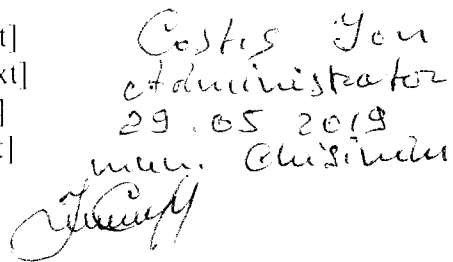 t] Costis Ion
xt] Administrator
] 29.05 2019
t] mun. Chisinau